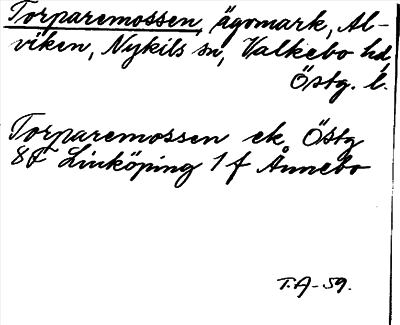 Torparemossen, ägomark, Al-
viken, Nykils sn, Valkebo hd,
Östg. l.
Torparemossen ek. Östg
8F Linköping 1 f Ånnebo
T.A-59.